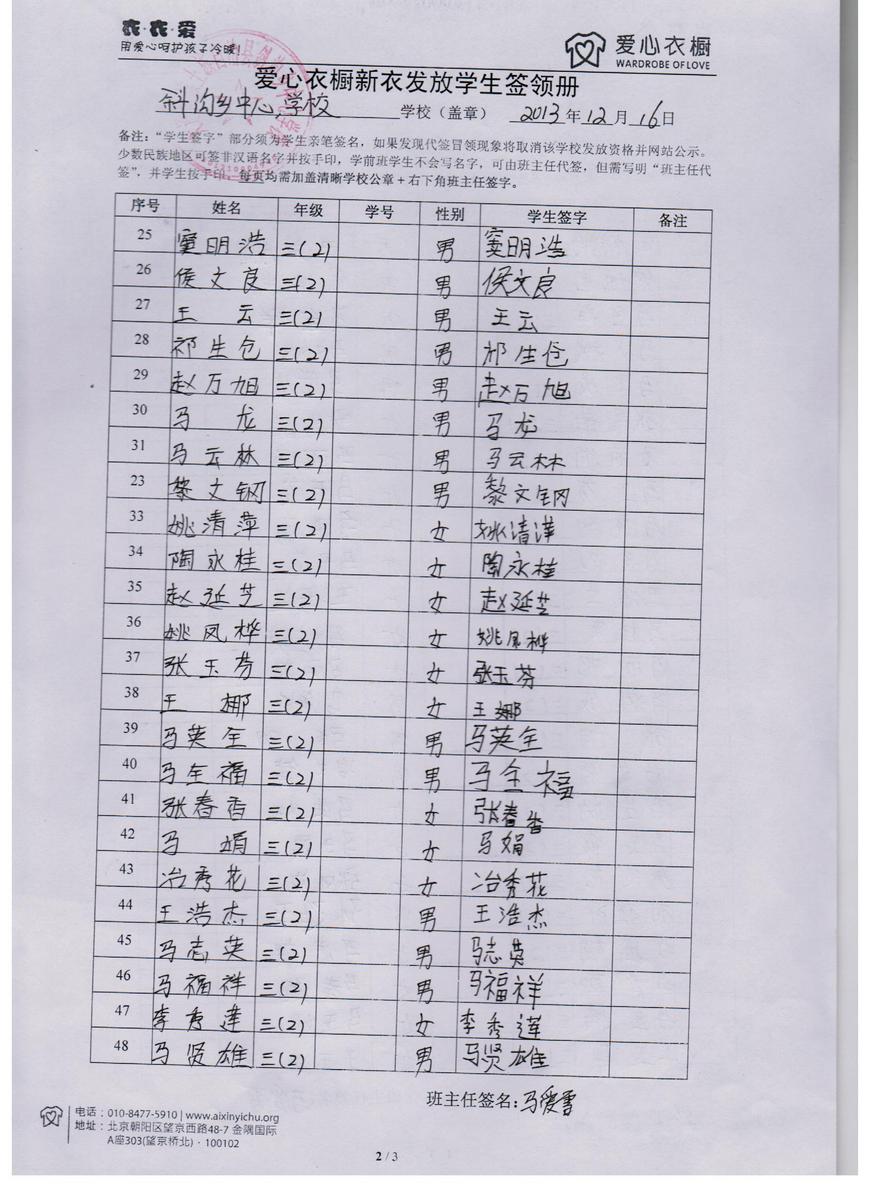 衣·衣·爱
用爱心呵护孩子冷暖!
爱心衣橱
WARDROBE OF LOVE
爱心衣橱新衣发放学生签领册
斜沟乡中心学校 学校（盖章） 2013年12月16日
备注：“学生签字”部分须为学生亲笔签名，如果发现代签冒领现象将取消该学校发放资格并网站公示。
少数民族地区可签非汉语名字并按手印，学前班学生不会写名字，可由班主任代签，但需写明“班主任代
签”，并学生按手印。每页均需加盖清晰学校公章+右下角班主任签字。
序号 姓名 年级 学号 性别 学生签字 备注
25 窦明浩 三(2) 男 窦明浩
26 侯文良 三(2) 男 侯文良
27 王云 三(2) 男 王云
28 祁生仓 三(2) 男 祁生仓
29 赵万旭 三(2) 男 赵万旭
30 马龙 三(2) 男 马龙
31 马云林 三(2) 男 马云林
23 黎文钢 三(2) 男 黎文钢
33 姚清萍 三(2) 女 姚清萍
34 陶永桂 三(2) 女 陶永桂
35 赵延芝 三(2) 女 赵延芝
36 姚凤桦 三(2) 女 姚凤桦
37 张玉芬 三(2) 女 张玉芬
38 王娜 三(2) 女 王娜
39 马英全 三(2) 男 马英全
40 马全福 三(2) 男 马全福
41 张春香 三(2) 女 张春香
42 马娟 三(2) 女 马娟
43 冶秀花 三(2) 女 冶秀花
44 王浩杰 三(2) 男 王浩杰
45 马志英 三(2) 男 马志英
46 马福祥 三(2) 男 马福祥
47 李秀莲 三(2) 女 李秀莲
48 马贤雄 三(2) 男 马贤雄
班主任签名:马爱雪
电话：010-8477-5910 | www.aixinyichu.org
地址：北京朝阳区望京西路48-7 金隅国际
A座303(望京桥北)·100102
2 / 3